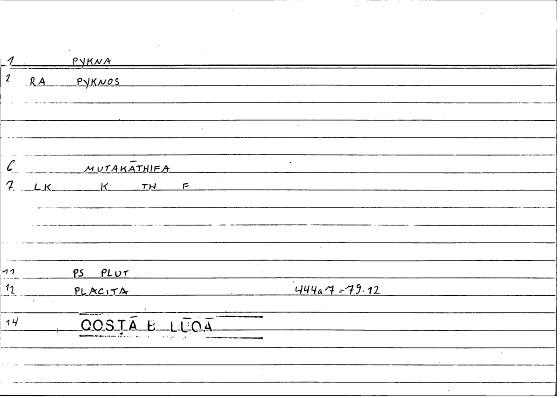 1 PYKNA
2 RA PYKNOS
6 MUTAKĀTHIFA
7 LK K TH F
11 PS PLUT
12 PLACITA 444a7=79.12
14 QOSṬĀ B LŪQĀ